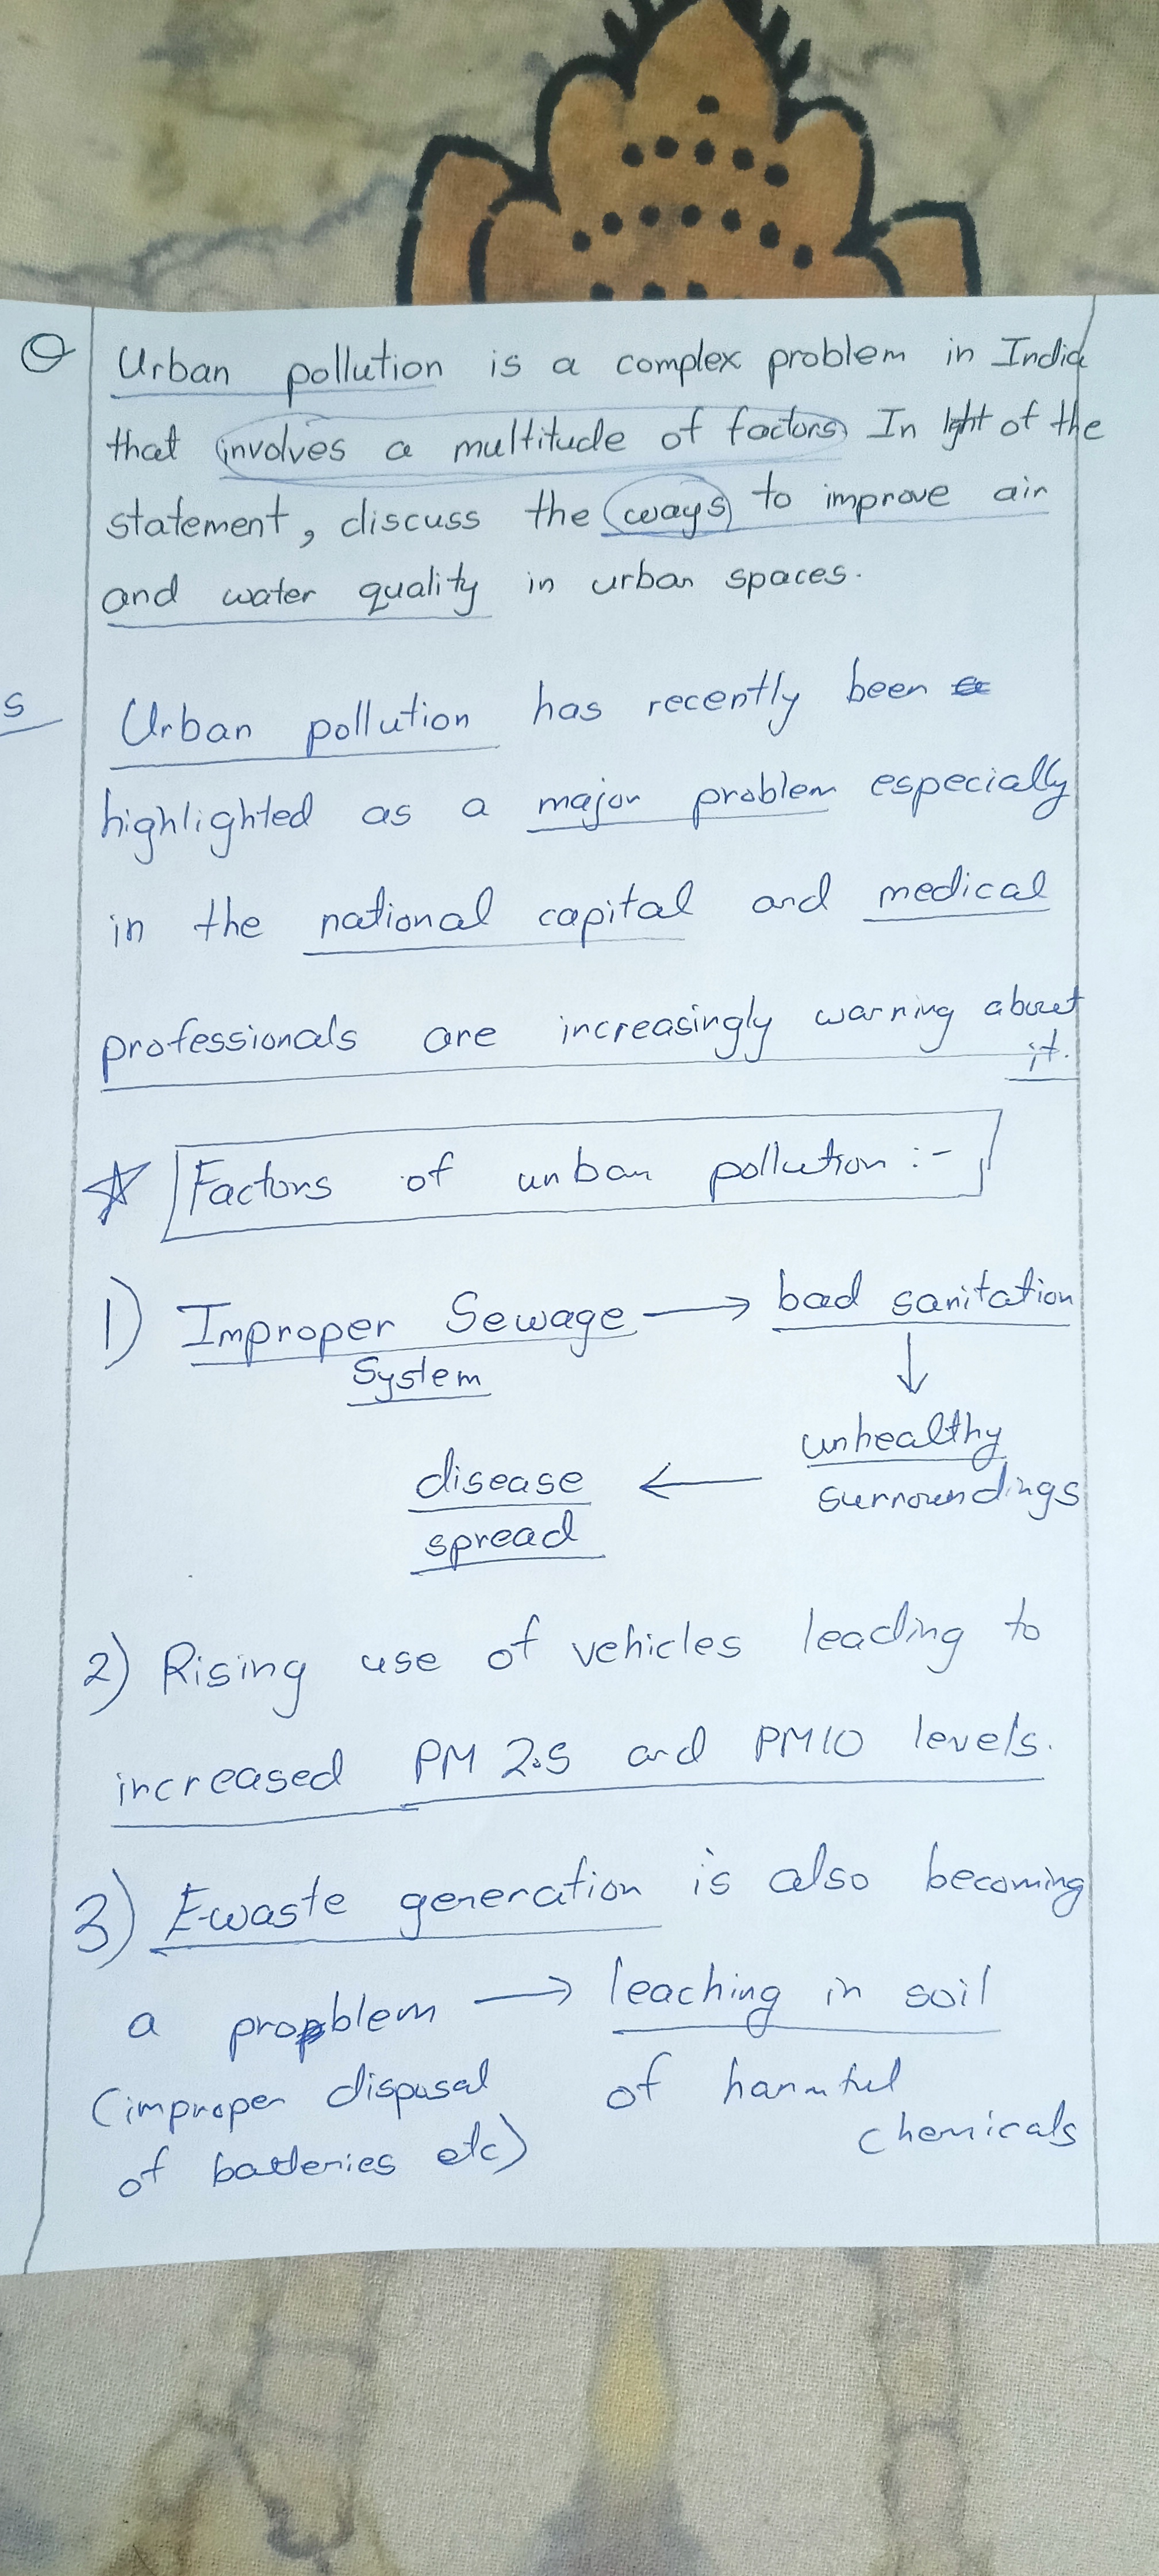 Q Urban pollution is a complex problem in India
that involves a multitude of factors In light of the
statement, discuss the ways to improve air
and water quality in urban spaces.
s Urban pollution has recently been
highlighted as a major problem especially
in the national capital and medical
professionals are increasingly warning about
it.
☆ Factors of urban pollution :-
1) Improper Sewage → bad sanitation
System
↓
unhealthy
disease ← surroundings
spread
2) Rising use of vehicles leading to
increased PM 2.5 and PM10 levels.
3) E-waste generation is also becoming
a problem → leaching in soil
(improper disposal of harmful
of batteries etc) chemicals